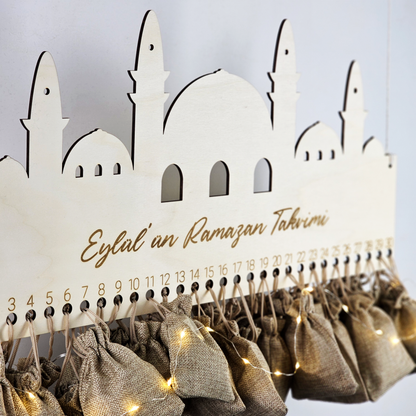 Eylal'an Ramazan Takvimi
3 4 5 6 7 8 9 10 11 12 13 14 15 16 17 18 19 20 21 22 23 24 25 26 27 28 29 30